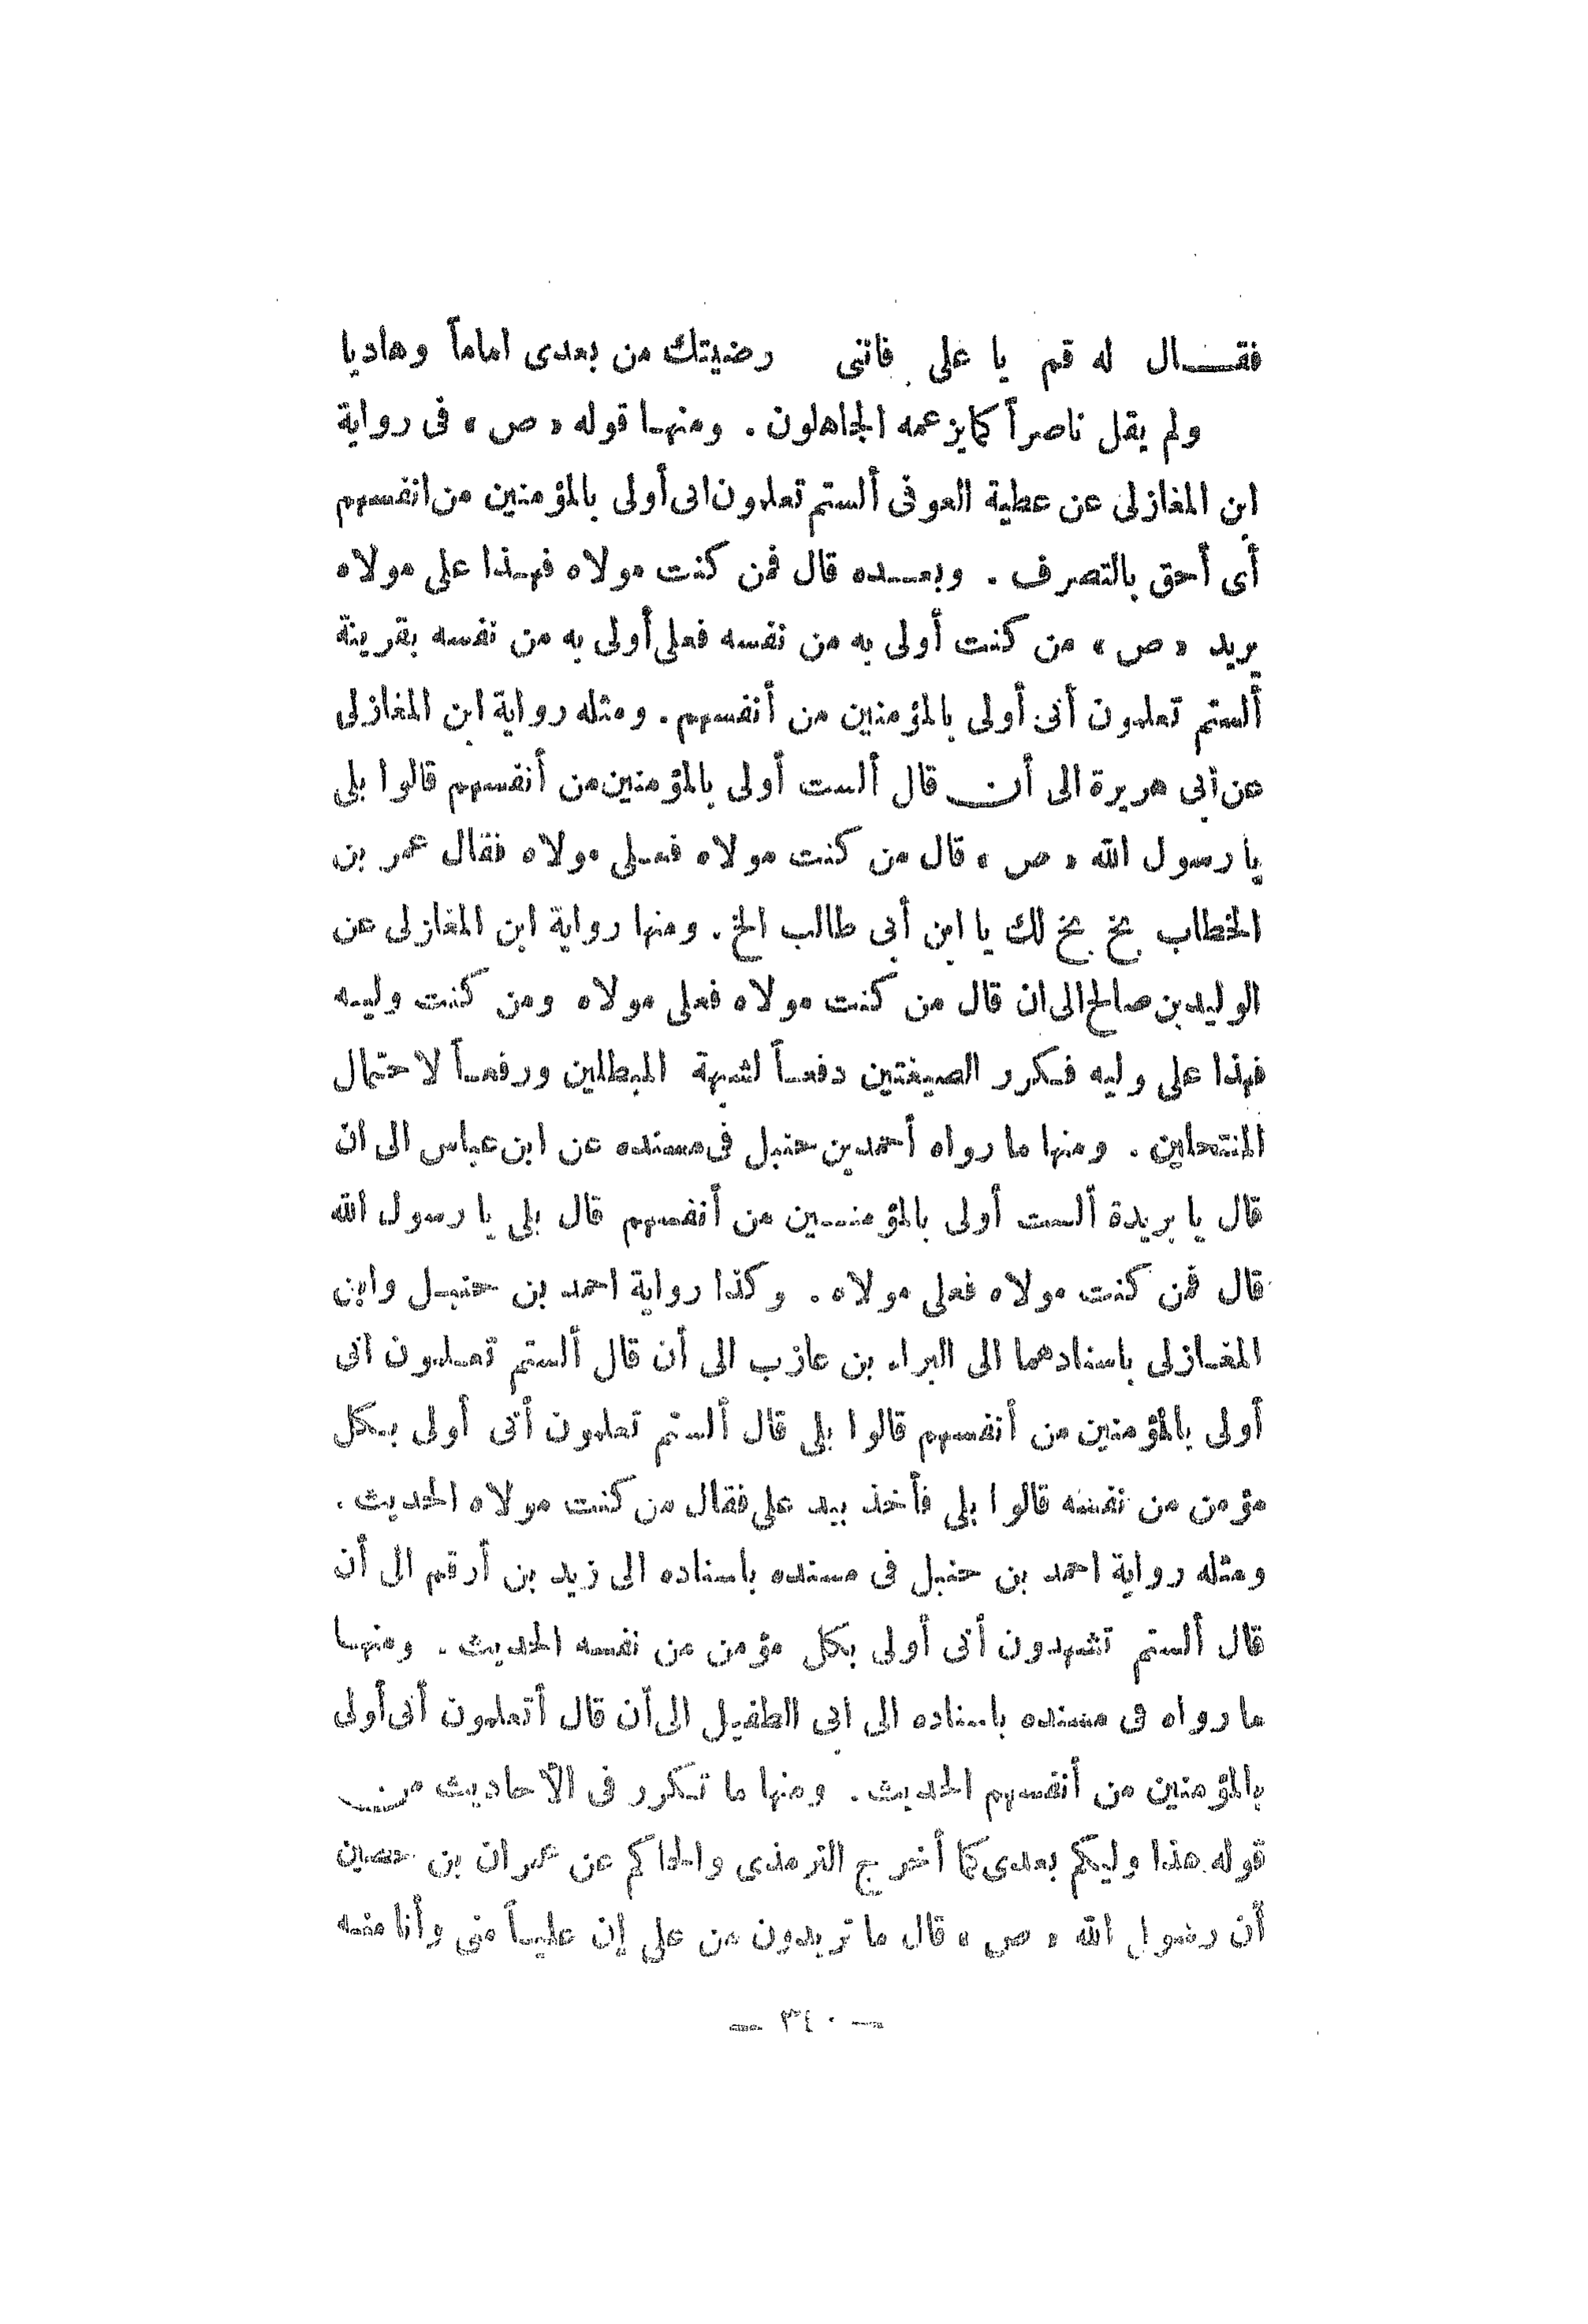 فقال له قم يا على فانى رضيتك من بعدى اماماً وهاديا
ولم يقل ناصراً كما يزعمه الجاهلون . ومنها قوله «ص» فى رواية
ابن المغازلى عن عطية العوفى ألستم تعلمون انى أولى بالمؤمنين من انفسهم
أى أحق بالتصرف . وبعده قال فمن كنت مولاه فهذا على مولاه
يريد «ص» من كنت أولى به من نفسه فعلى أولى به من نفسه بقرينة
ألستم تعلمون أنى أولى بالمؤمنين من أنفسهم . ومثله رواية ابن المغازلى
عن أبى هريرة الى أن قال ألست أولى بالمؤمنين من أنفسهم قالوا بلى
يا رسول الله «ص» قال من كنت مولاه فعلى مولاه فقال عمر بن
الخطاب بخ بخ لك يا ابن أبى طالب الخ . ومنها رواية ابن المغازلى عن
الوليد بن صالح الى ان قال من كنت مولاه فعلى مولاه ومن كنت وليه
فهذا على وليه فكرر الصيغتين دفعاً لشبهة المبطلين ورفعاً لاحتمال
المنتحلين . ومنها ما رواه أحمد بن حنبل فى مسنده عن ابن عباس الى ان
قال يا بريدة ألست أولى بالمؤمنين من أنفسهم قال بلى يا رسول الله
قال فمن كنت مولاه فعلى مولاه . وكذا رواية احمد بن حنبل وابن
المغازلى باسنادهما الى البراء بن عازب الى أن قال ألستم تعلمون أنى
أولى بالمؤمنين من أنفسهم قالوا بلى قال ألستم تعلمون أنى أولى بكل
مؤمن من نفسه قالوا بلى فأخذ بيد على فقال من كنت مولاه الحديث .
ومثله رواية احمد بن حنبل فى مسنده باسناده الى زيد بن أرقم الى أن
قال ألستم تشهدون أنى أولى بكل مؤمن من نفسه الحديث . ومنها
ما رواه فى مسنده باسناده الى ابى الطفيل الى أن قال أتعلمون أنى أولى
بالمؤمنين من أنفسهم الحديث . ومنها ما تكرر فى الأحاديث من
قوله هذا وليكم بعدى كما أخرج الترمذى والحاكم عن عمران بن حصين
أن رسول الله «ص» قال ما تريدون من على إن علياً منى وأنا منه
— ٣٤٠ —